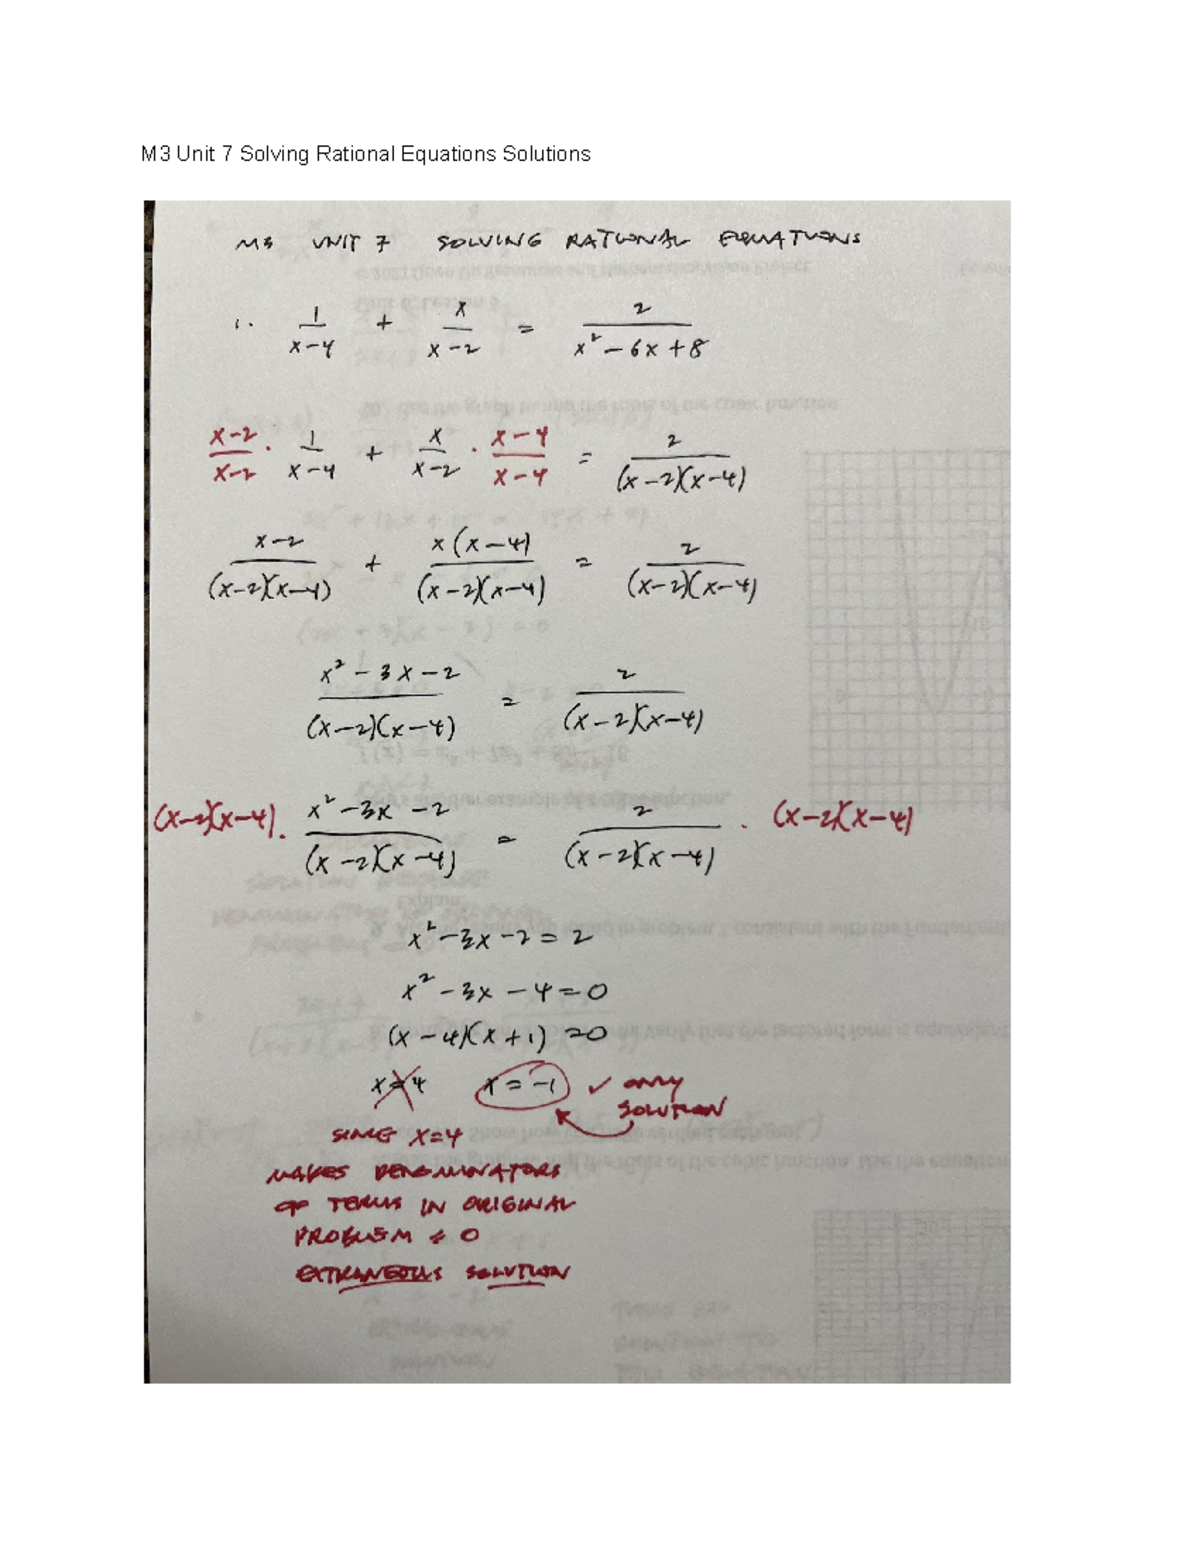 M3 Unit 7 Solving Rational Equations Solutions
M3 UNIT 7 SOLVING RATIONAL EQUATIONS
1. 1/(x-4) + x/(x-2) = 2/(x²-6x+8)
(x-2)/(x-2) · 1/(x-4) + x/(x-2) · (x-4)/(x-4) = 2/((x-2)(x-4))
(x-2)/((x-2)(x-4)) + x(x-4)/((x-2)(x-4)) = 2/((x-2)(x-4))
(x²-3x-2)/((x-2)(x-4)) = 2/((x-2)(x-4))
(x-2)(x-4) · (x²-3x-2)/((x-2)(x-4)) = 2/((x-2)(x-4)) · (x-2)(x-4)
x²-3x-2=2
x²-3x-4=0
(x-4)(x+1)=0
x=4 x=-1 ✓ ONLY
SOLUTION
SINCE x=4
MAKES DENOMINATORS
OF TERMS IN ORIGINAL
PROBLEM = 0
EXTRANEOUS SOLUTION